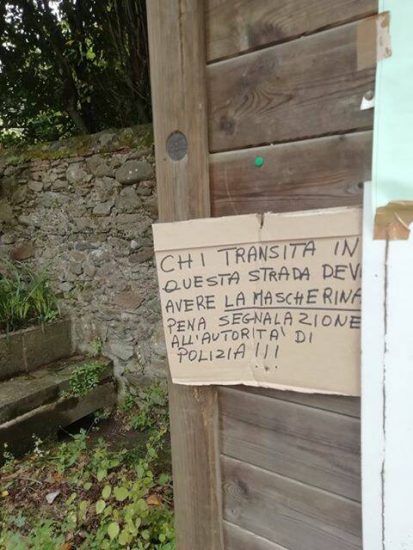 CHI TRANSITA IN
QUESTA STRADA DEV
AVERE LA MASCHERINA
PENA SEGNALAZIONE
ALL'AUTORITA' DI
POLIZIA!!!